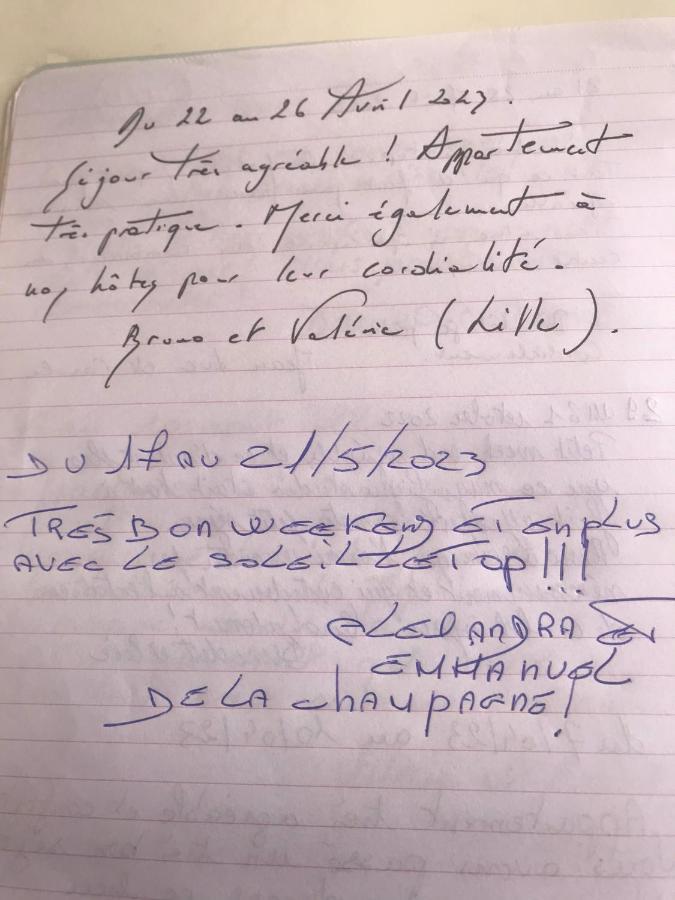 Du 22 au 26 Avril 2023.
Séjour très agréable ! Appartement
très pratique. Merci également à
nos hôtes pour leur cordialité.
Bruno et Valérie (Lille).
DU 17 AU 21/5/2023
TRES BON WEEKEND ET EN PLUS
AVEC LE SOLEIL LE TOP!!!
ALEXANDRA ET
EMMANUEL
DE LA CHAMPAGNE!